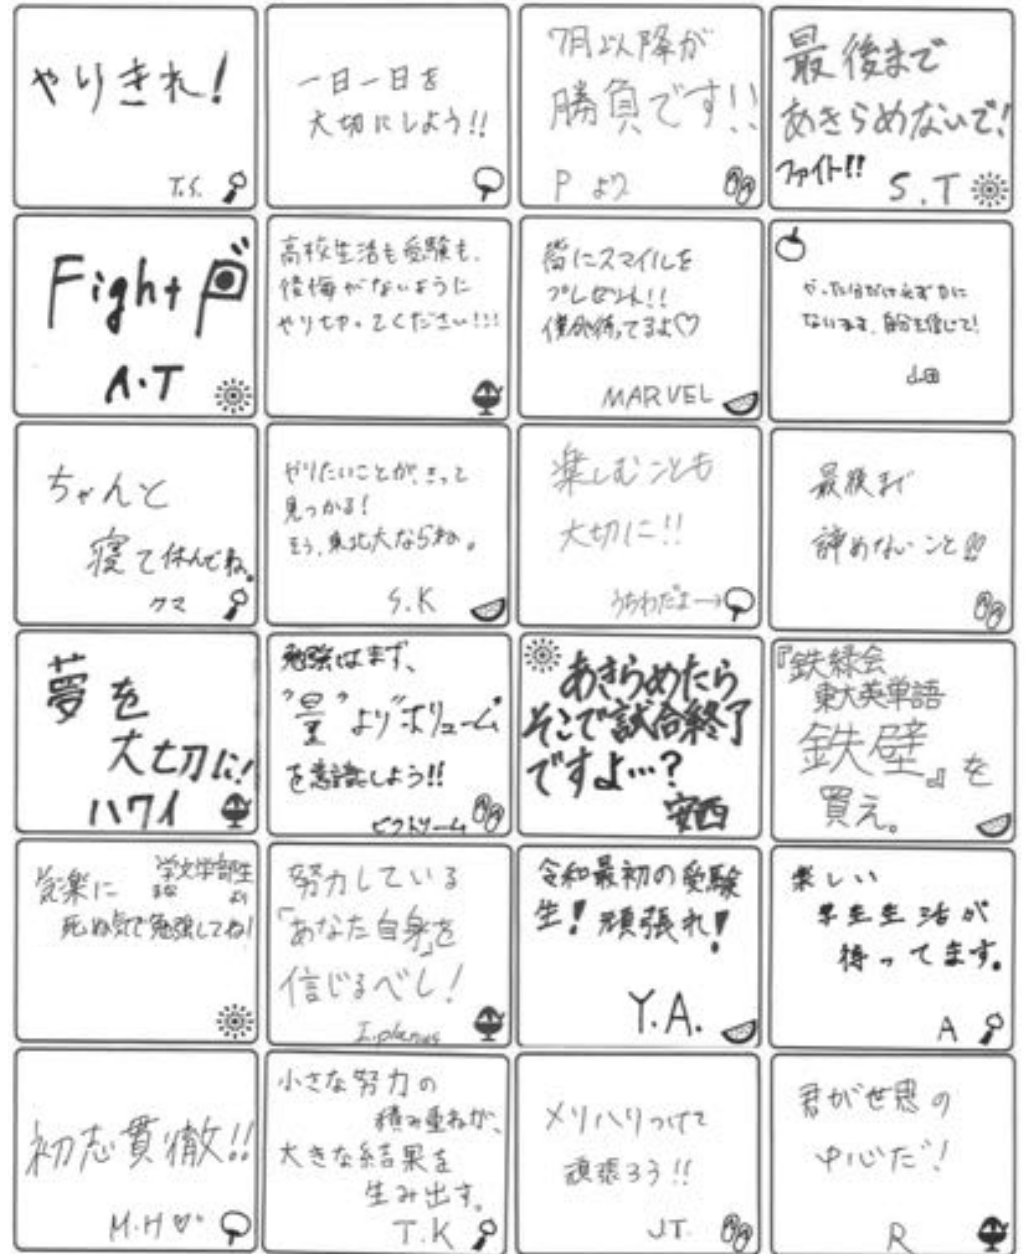 やりきれ!
T.S.
一日一日を
大切にしよう!!
7月以降が
勝負です!!
Pより
最後まで
あきらめないで!
ファイト!!
S.T
Fight
A.T
高校生活も受験も、
後悔がないように
やりきってください!!!
皆にスマイルを
プレゼント!!
僕待ってるよ♡
MARVEL
やった分だけ必ず力に
なります。自分を信じて!
ちゃんと
寝て休んでね。
クマ
やりたいことが、きっと
見つかる!
そう、東北大ならね。
S.K
楽しむことも
大切に!!
うちわだよ→
最後まで
諦めないこと!!
夢を
大切に!
ハワイ
勉強はまず、
"量"より"ボリューム"
を意識しよう!!
ビクトリーム
あきらめたら
そこで試合終了
ですよ…?
安西
『鉄緑会
東大英単語
鉄壁』を
買え。
気楽に
死ぬ気で勉強してね!
文学部生
より
努力している
「あなた自身」を
信じるべし!
令和最初の受験
生!頑張れ!
Y.A.
楽しい
学生生活が
待ってます。
A
初志貫徹!!
M.H♡
小さな努力の
積み重ねが、
大きな結果を
生み出す。
T.K
メリハリつけて
頑張ろう!!
J.T.
君が世界の
中心だ!
R